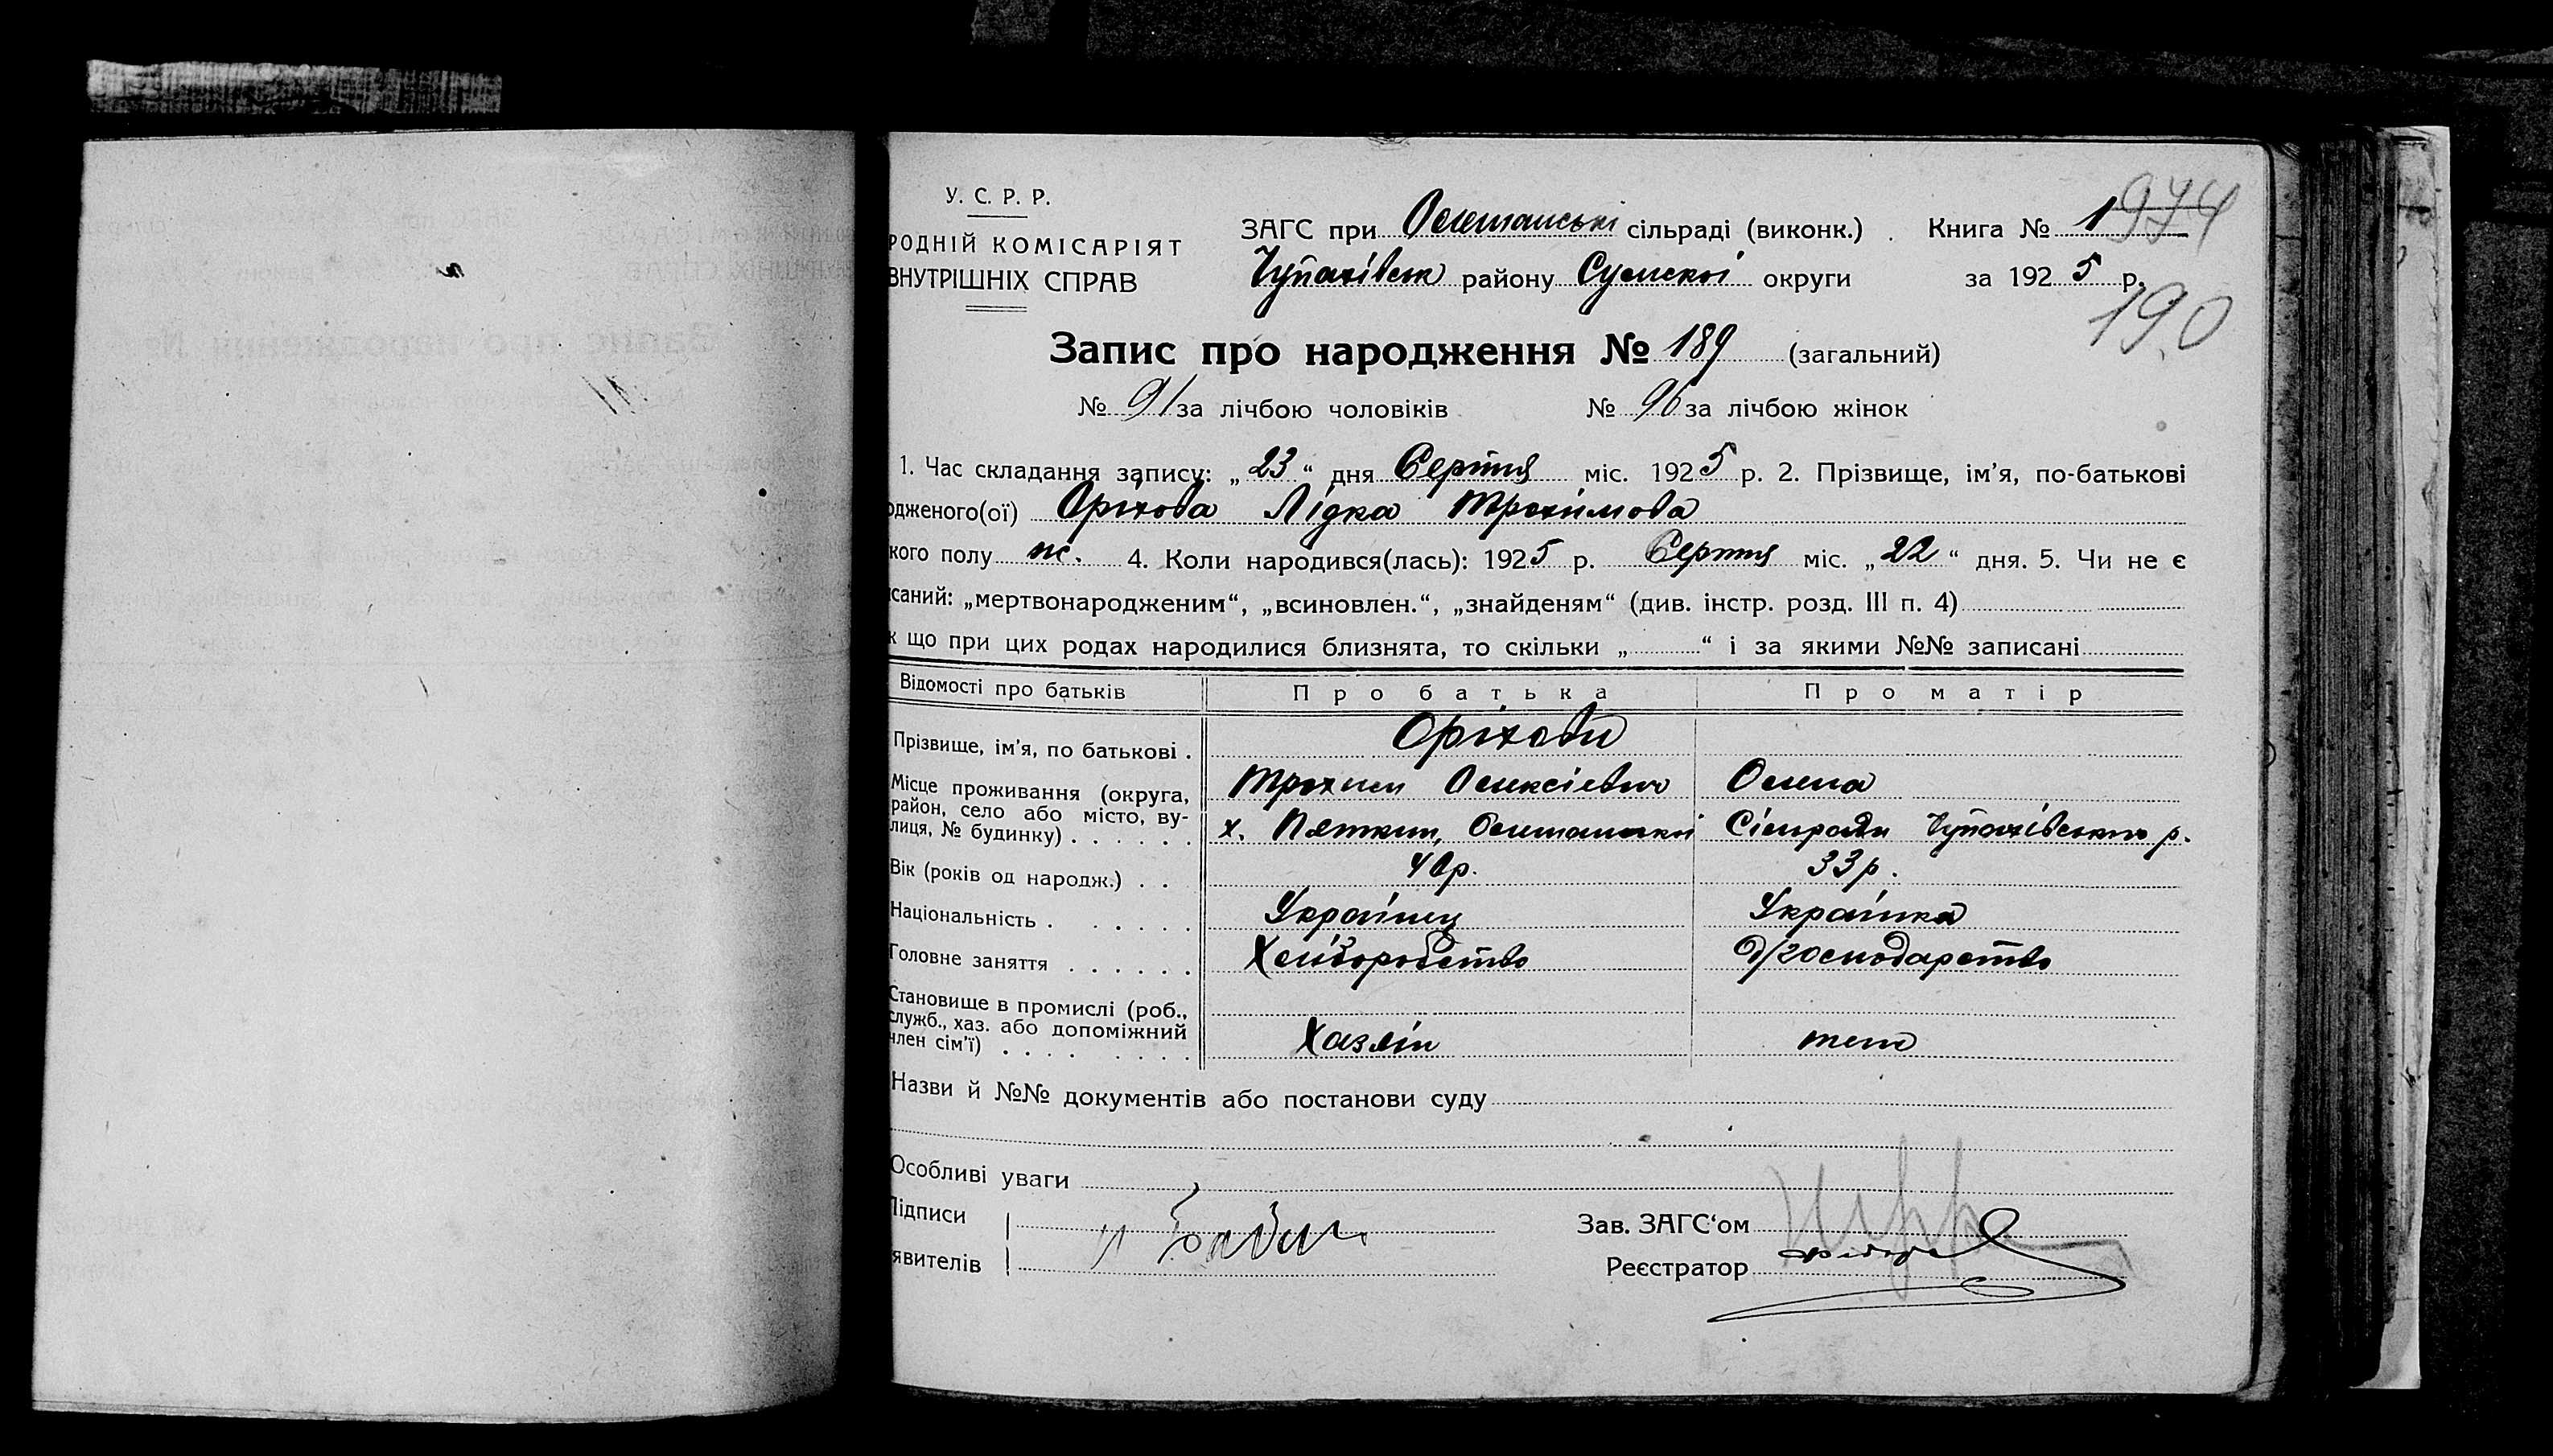 У. С. Р. Р.
РОДНІЙ КОМІСАРІЯТ
ВНУТРІШНІХ СПРАВ
ЗАГС при Олешанські сільраді (виконк.) . Книга № 1 974
Чупахівськ району Сумскої округи за 1925 р.
190
Запис про народження № 189 (загальний)
№ 91 за лічбою чоловіків № 96 за лічбою жінок
1. Час складання запису: „23“ дня Серпня міс. 1925 р. 2. Прізвище, ім’я, по-батькові
одженого(ої) Оріхова Лідка Трохимова
кого полу ж. 4. Коли народився(лась): 1925 р. Серпня міс. „22“ дня. 5. Чи не є
исаний: „мертвонародженим“, „всиновлен.“, „знайденям“ (див. інстр. розд. III п. 4)
к що при цих родах народилися близнята, то скільки „ “ і за якими №№ записані
Відомості про батьків Про батька Про матір
Прізвище, ім’я, по батькові . Оріхови
Місце проживання (округа, район, село або місто, вулиця, № будинку) . . . . . .
Трохим Олексієвич Олена
х. Пяткин, Олешанської Сільради Чупахівського р.
Вік (років од народж.) . . 40р. 33р.
Національність . . . . . . Українец Українка
Головне заняття . . . . . . Хліборобство д/господарство
Становище в промислі (роб.,
служб., хаз. або допоміжний
член сім’ї) . . . . . . . . Хазяїн
Назви й №№ документів або постанови суду
Особливі уваги
Підписи
явителів
Зав. ЗАГС‘ом
Реєстратор